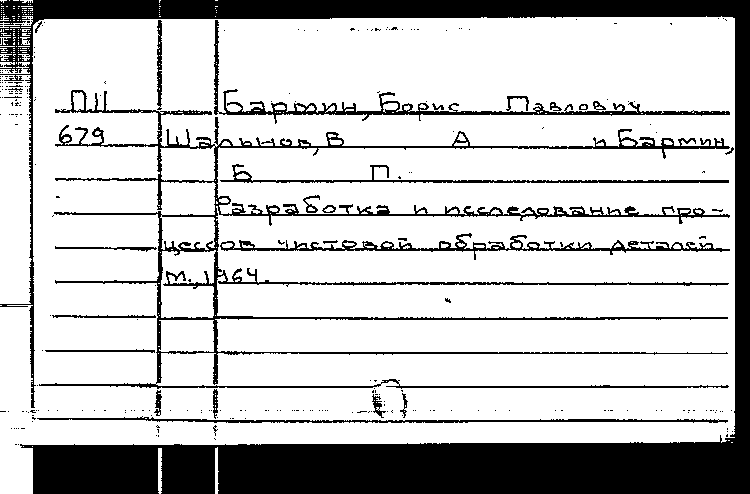 П11 Бармин, Борис Павлович
679 Шальнов, В А и Бармин,
Б П.
Разработка и исследование про-
цессов чистовой обработки деталей
М., 1964.